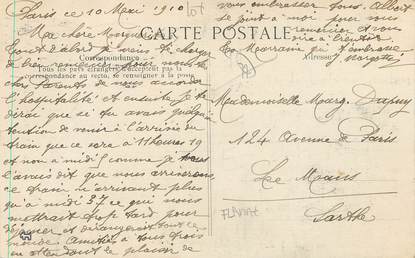 Paris ce 10 Mai 1910
Ma chère Marg
Tout d'abord je viens te charger
de bien remercier pour nous tes
chers Parents de nous accorder
l'hospitalité et ensuite je te
dirai que si tu avais
tention de venir à l'arrivée du
train que ce sera à 11 heures 19
et non à midi comme je
l'avais dit que nous arriverons
ce train n'arrivant plus
qu'à midi 37 ce qui nous
mettrait trop tard pour
déjeuner et dérangerait tout le
monde. Amitiés à tous trois
en attendant le plaisir de
vous embrasser tous. Albert
se joint à moi pour vous
remercier et vous
dire à bientôt
Ta Marraine qui t'embrasse
CARTE POSTALE
Correspondance
Tous les pays étrangers n'acceptent pas la
correspondance au recto, se renseigner à la poste
Adresse
Mademoiselle Marg. Dapuy
124 Avenue de Paris
Le Mans
Sarthe